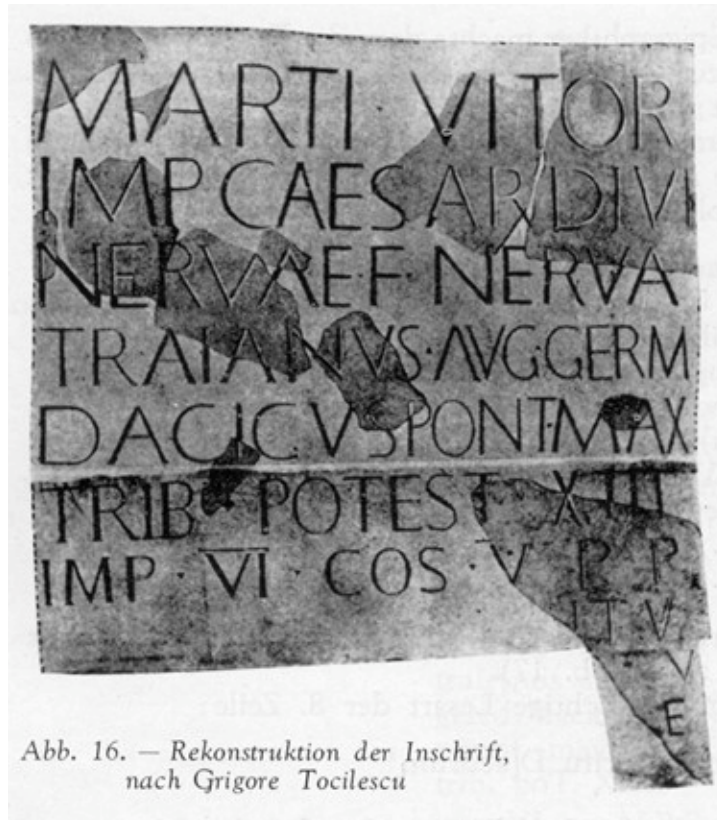 MARTI VITOR
IMP CAESAR DIVI
NERVAE·F·NERVA
TRAIANVS·AVG·GERM
DACICVS PONT MAX
TRIB POTEST XIII
IMP·VI·COS·V P P
IT V
V
E
Abb. 16. — Rekonstruktion der Inschrift,
nach Grigore Tocilescu